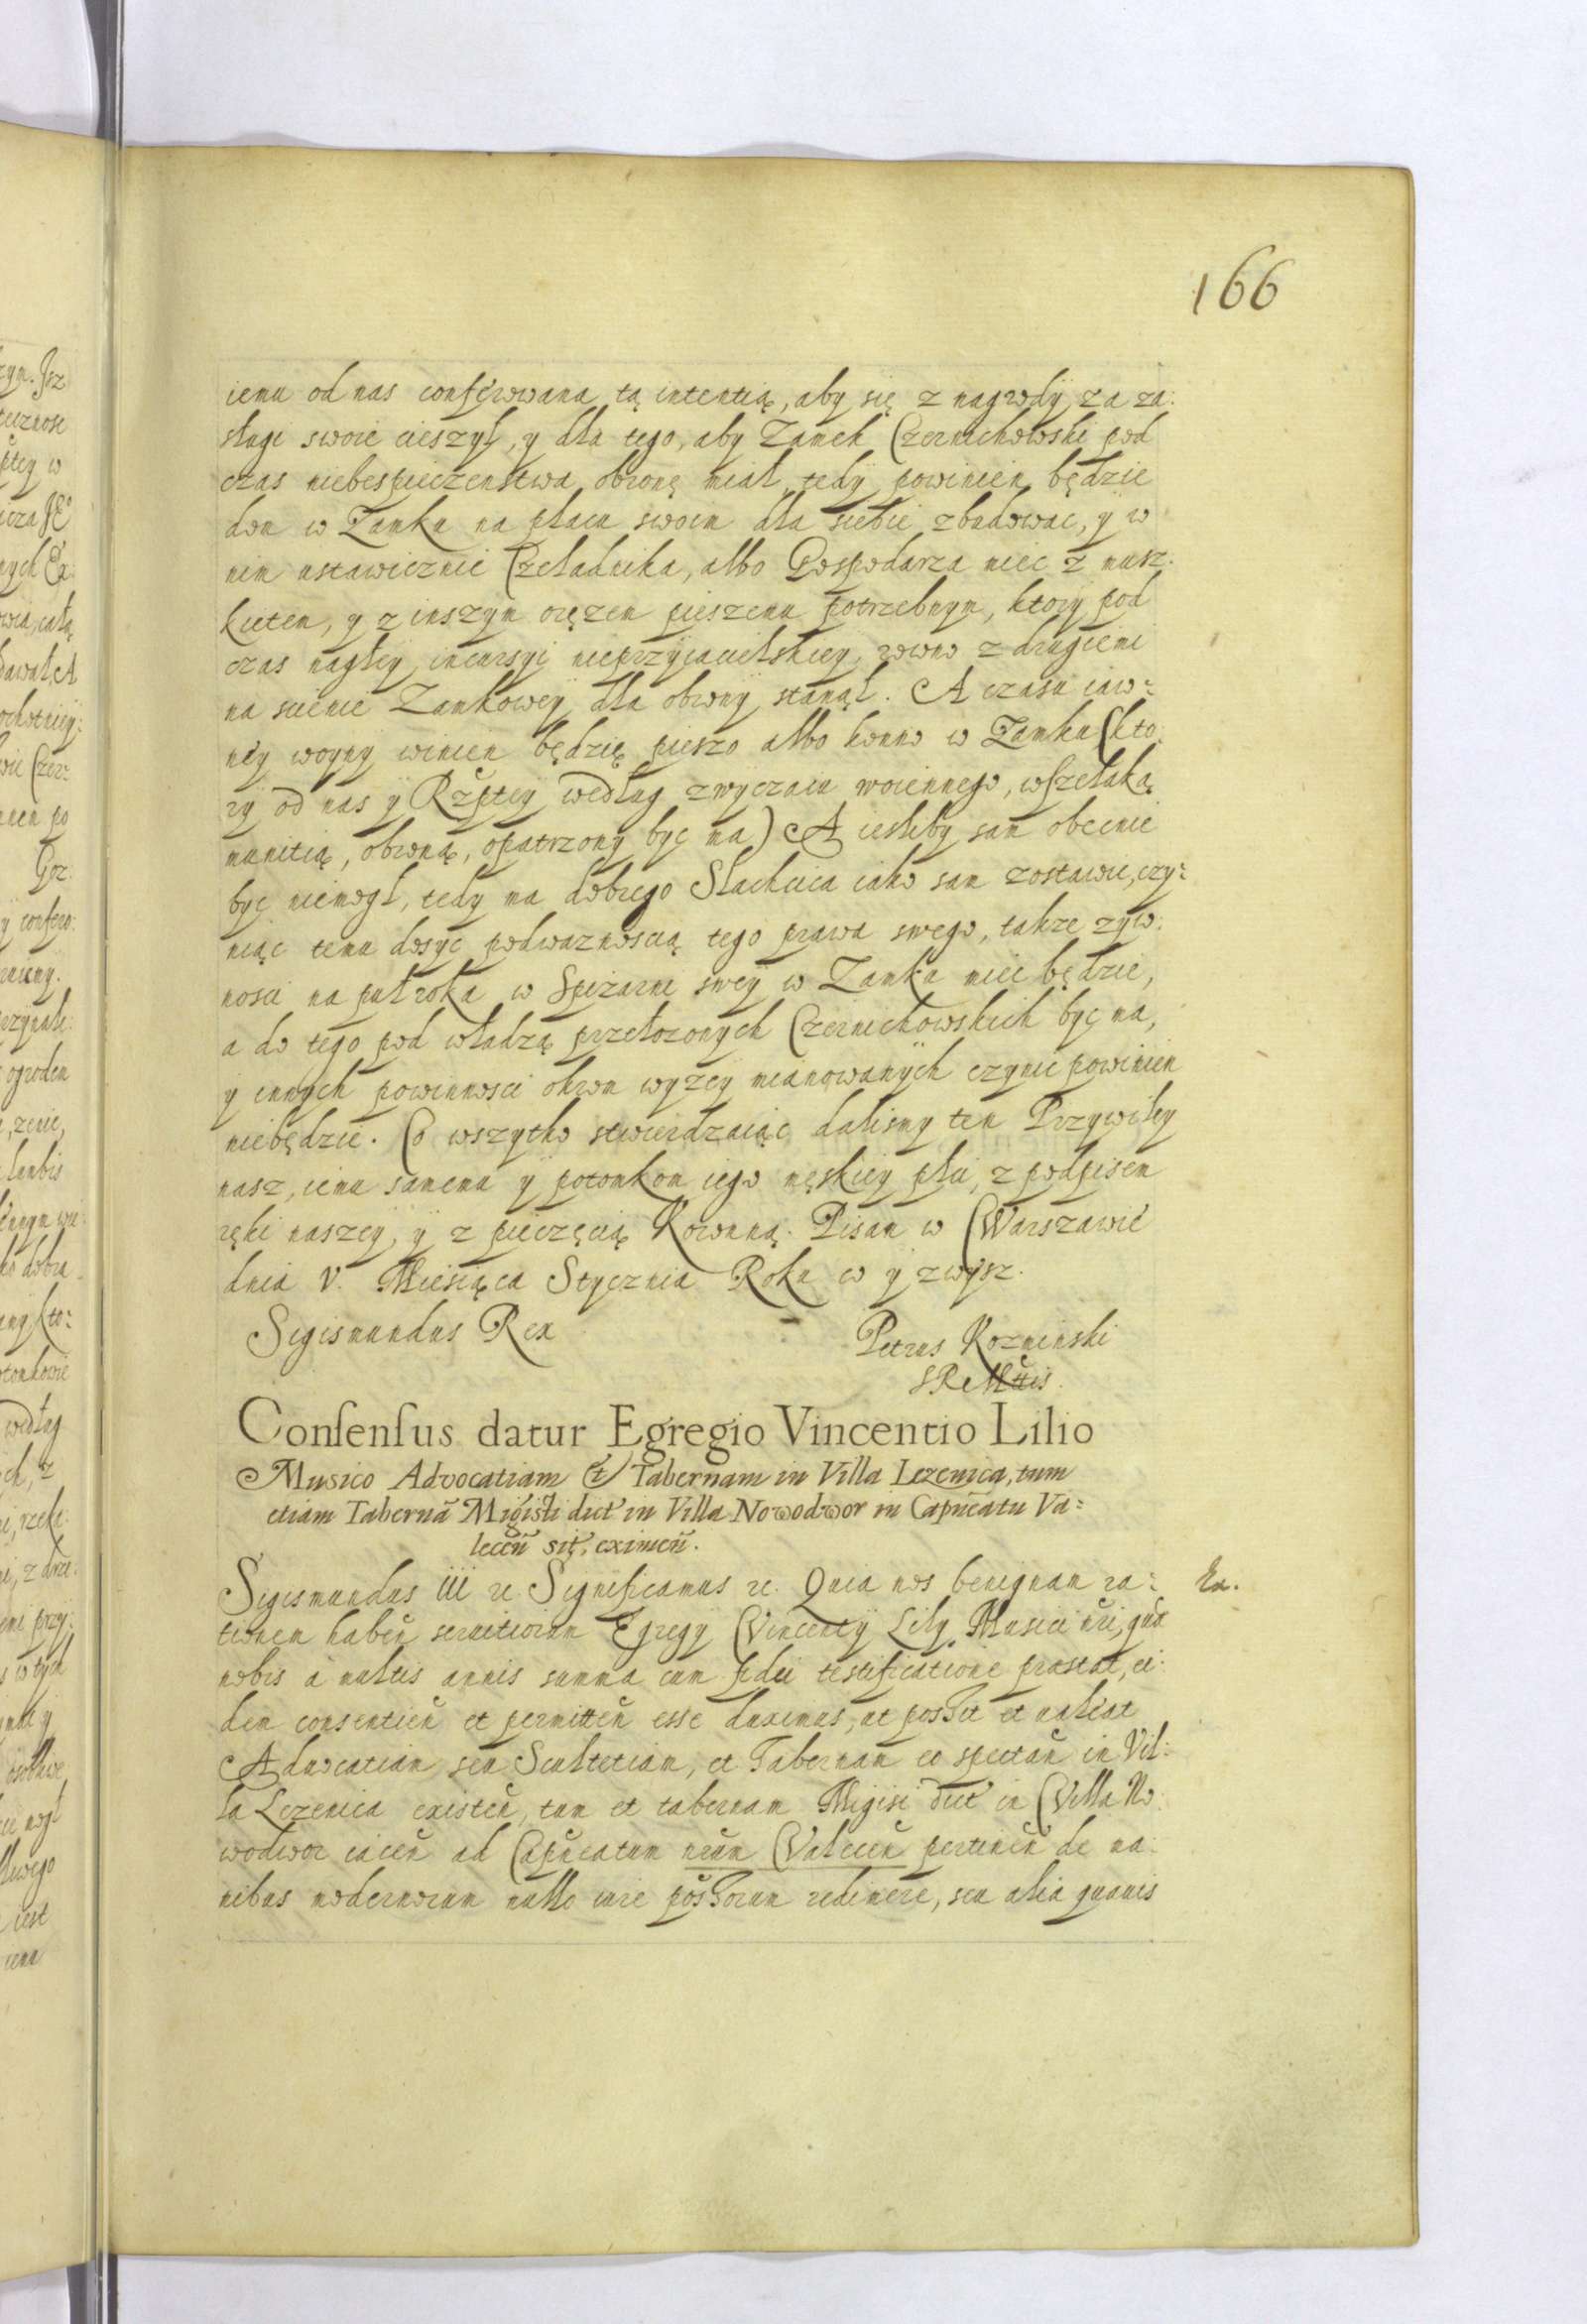 166
iemu od nas conferowana tą intentią, aby się z nagrody za za:
sługi swoie cieszył, y dla tego, aby Zamek Czernichowski pod
czas niebespieczenstwa obronę miał, tedy powinien będzie
dom w Zamku na placu swoim dla siebie zbudować, y w
nim ustawicznie Czeladnika, albo Gospodarza mieć z musz:
kietem, y z inszym oręzem pieszemu potrzebnym, ktory pod
czas nagłey incursyi nieprzyiacielskiey, rowno z drugiemi
na scienie Zamkowey dla obrony stanął. A czasu iaw:
ney woyny winien będzię pieszo albo konno w Zamku (kto:
ry od nas ÿ Rzptey według zwyczaiu woiennego, wszelaką
munitią, obroną, opatrzony być ma) A iesliby sam obecnie
być niemogł, tedy ma dobrego Slachcica iako sam zostawić, czy:
niąc temu dosyć podwaznoscią tego prawa swego, takze zyw:
nosci na pułroka w Spiżarni swey w Zamku mieć będzie,
a do tego pod władzą przełozonych Czernichowskich być ma,
y innych powinnosci okrom wyzey mianowanych czynić powinien
niebędzie. Co wszytko stwierdzaiąc dalismy ten Przywiley
nasz, iemu samemu ÿ potomkom iego męskiey płci, z podpisem
ręki naszey, ÿ z pieczęcią Koronną. Pisan w Warszawie
dnia V. Miesiąca Stycznia Roku w y zwysz.
Sigismundus Rex
Petrus Kozminski
SRMttis.
Consensus datur Egregio Vincentio Lilio
Musico Advocatiam & Tabernam in Villa Lezenica, tum
etiam Tabernã Migisti dict in Villa Nowodwor in Capneatu Va:
lceñ sit, eximeñ.
Ex.
Sigismundus III rc Significamus rc. Quia nos benignam ra:
tionem habeñ seruitiorum Egregÿ Vincentÿ Lilÿ Musici nri, qua
nobis à multis annis summa cum fidei testificatione prestat, ei:
dem consentieñ et permitteñ esse duximus, ut possit et ualeat
Aduocatiam seu Scultetiam, et Tabernam eo spectañ in Vil:
la Lezenica existeñ, tum et tabernam Migisi dict in Villa No:
wodwor iaceñ ad Capneatum nrum Valceñ pertineñ de ma:
nibus modernorum nullo iure possorum redimere, seu alia quauis